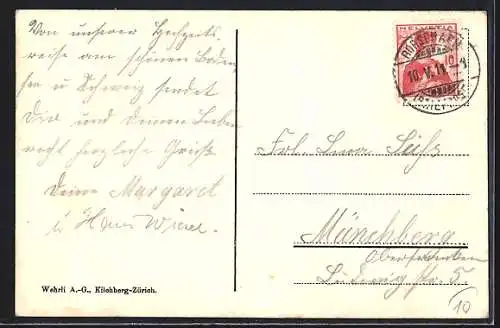 Von unserer Hochzeits
reise am schönen Boden
see u Schweiz sendet
Dir und deinen Lieben
recht herzliche Grüße
Deine Margaret
u Hans
HELVETIA
10
RORSCHACH
10. V. 11
Frl.
Münchberg
Oberfranken
Ludwigstr. 5
Wehrli A.-G., Kilchberg-Zürich.
10